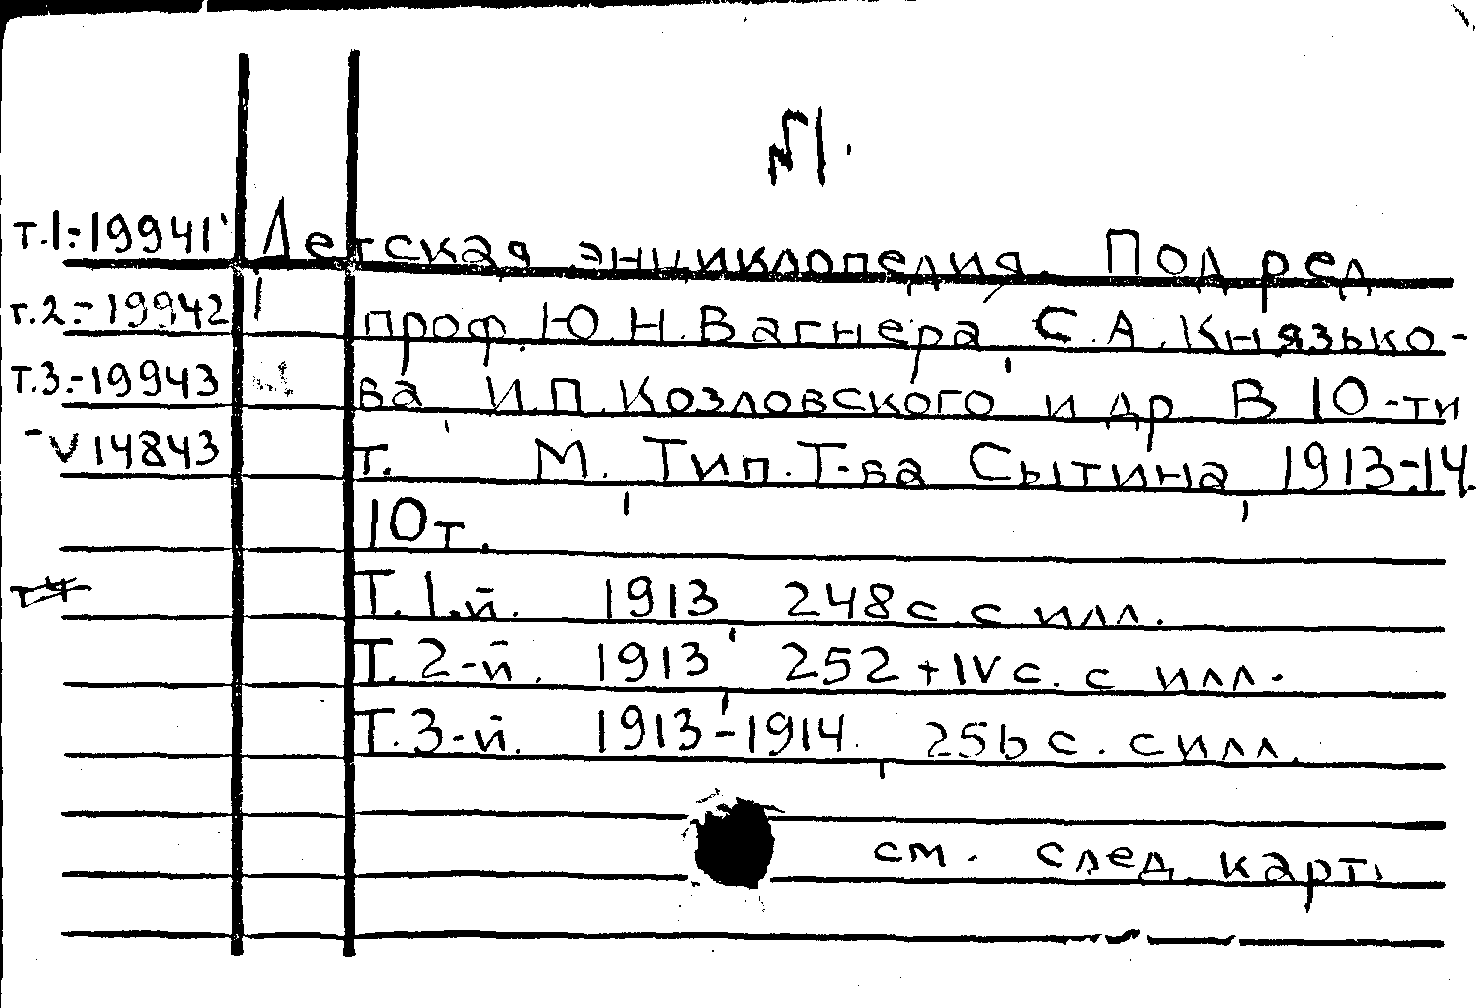 №1.
т.1:-19941 Детская энциклопедия. Под ред
т.2:-19942 проф. Ю.Н.Вагнера, С.А.Князько-
т.3:-19943 ва, И.П.Козловского и др В 10-ти
-V14843 т. М., Тип.Т-ва Сытина, 1913-14.
10т.
т.4 Т.1.й. 1913, 248с. с илл.
Т.2-й. 1913, 252+IVс. с илл.
Т.3-й. 1913-1914, 256с. с илл.
см. след. карт.